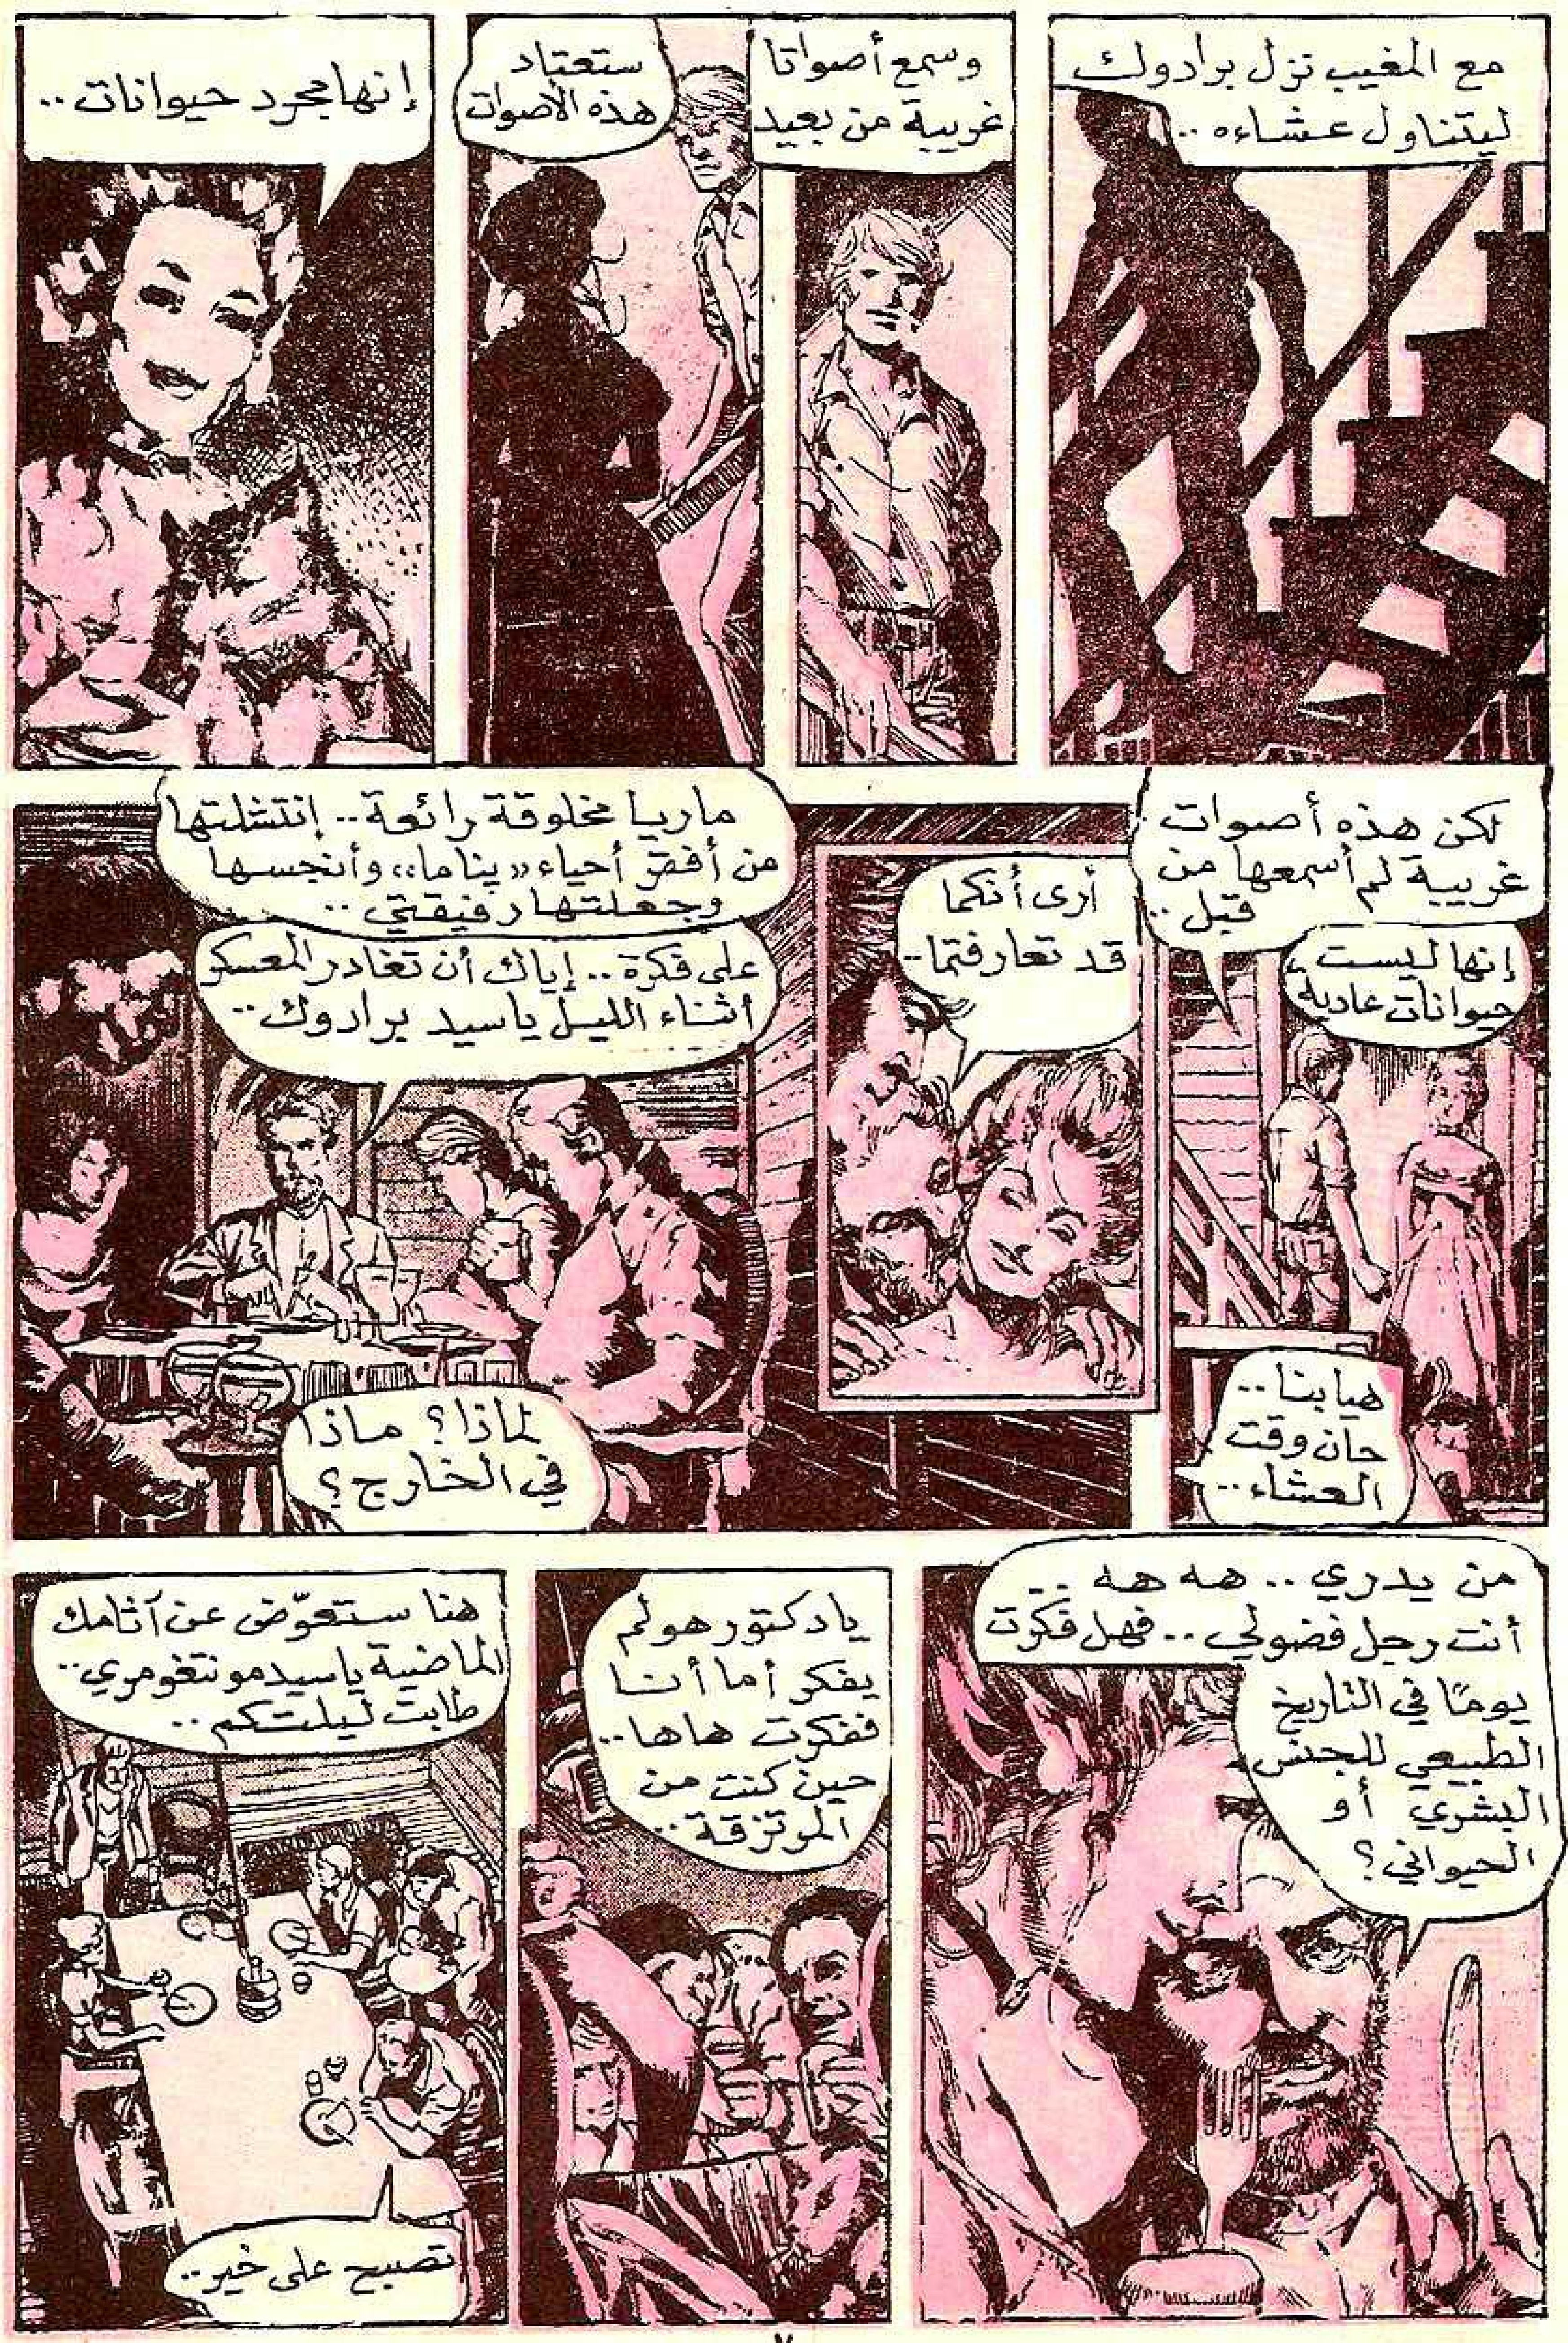 مع المغيب نزل برادوك
ليتناول عشاءه ..
وسمع أصواتا
غريبة من بعيد
ستعتاد
هذه الأصوات
إنها مجرد حيوانات ..
لكن هذه أصوات
غريبة لم أسمعها من
قبل ..
إنها ليست
حيوانات عادية
هيا بنا ..
حان وقت
العشاء ..
أرى أنكما
قد تعارفتما ..
ماريا مخلوقة رائعة .. إنتشلتها
من أفقر أحياء «بناما» وأنجسها
وجعلتها رفيقتي ..
على فكرة .. إياك أن تغادر المعسكر
أثناء الليل يا سيد برادوك ..
لماذا؟ ماذا
في الخارج؟
من يدري .. هه هه
أنت رجل فضولي .. فهل فكرت
يومًا في التاريخ
الطبيعي للجنس
البشري أو
الحيواني؟
يا دكتور هو لم
يفكر أما أنا
ففكرت ها ها ..
حين كنت من
المرتزقة ..
هنا ستعوّض عن آثامك
الماضية يا سيد مونتغومري ..
طابت ليلتكم ..
تصبح على خير ..
٧